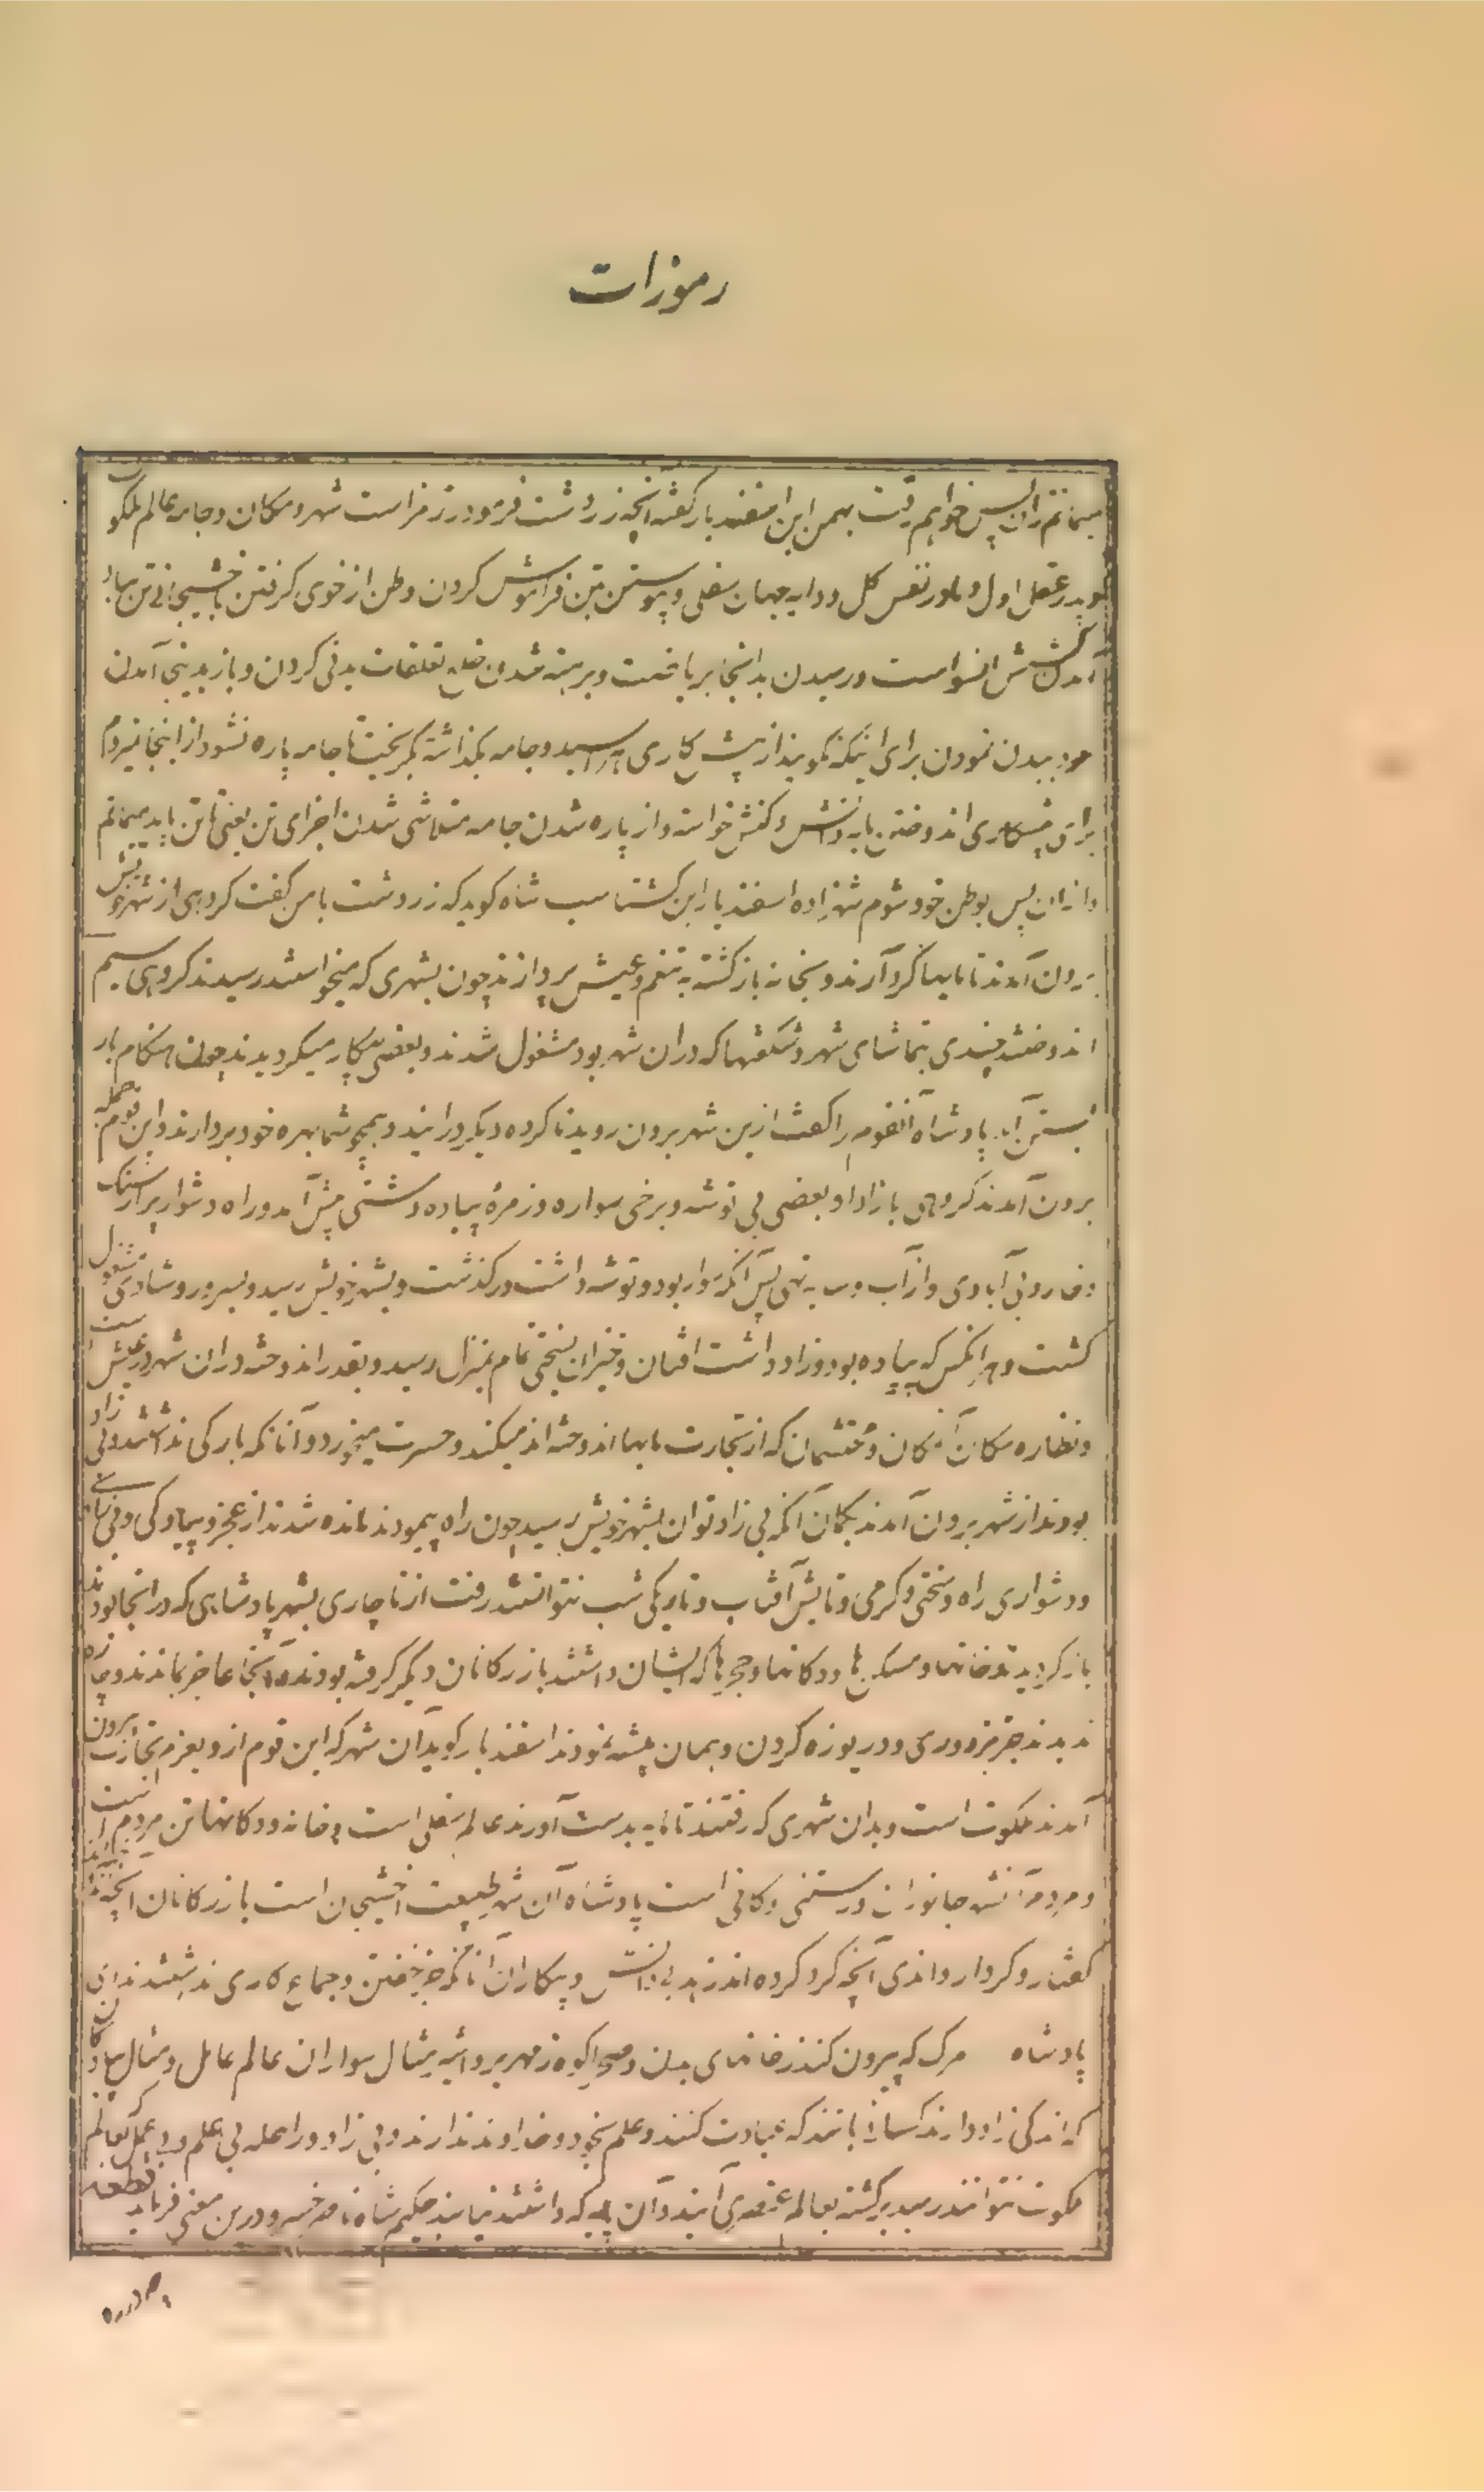 رموزات
میمانم زان پس خواهم رفت بهمن ابن اسفندیار گفته آنچه زردشت فرمود رمز است شهر و مکان و جامه عالم ملکوت
پدر عقل اول و مادر نفس کل و دایه جهان سفلی و پیوستن بتن فراموش کردن وطن از خوی گرفتن باخشیجانی تن
کشش انسو است و رسیدن بدانجا بریاضت و برهنه شدن خلع تعلقات بدنی کردن و باز بدینجا آمدن
عود ببدن نمودن برای اینکه نگویند از پیش کاری هراسید و جامه بگذاشته بگریخت تا جامه پاره نشود از اینجا نمیروم
برای پیشکاری اندوختن مایه دانش و کنش خواسته و از پاره شدن جامه متلاشی شدن اجزای تن یعنی تا تن پاید میمانم
و ازان پس بوطن خود شوم شهزاده اسفندیار ابن گشتاسب شاه گوید که زردشت با من گفت گروهی از شهر خویش
برون آمدند تا مایها گرد آرند و بخانه بازگشته به تنعم و عیش پردازند چون بشهری که میخواستند رسیدند گروهی سیم
اندوختند چندی بتماشای شهر و شگفتها که دران شهر بود مشغول شدند و بعضی بیکار میگردیدند چون هنگام بار
بستن آمد پادشاه آنقوم را گفت ازین شهر برون روید تا گروه دیگر درآیند و همچو شما بهره خود بردارند و این قوم جمله
برون آمدند گروهی با زاد و بعضی بی توشه و برخی سواره و زمرهٔ پیاده دشتی پیش آمد و راه دشوار پر از سنگ
و خار و بی آبادی و از آب و سایه تهی پس آنکه سوار بود و توشه داشت درگذشت و بشهر خویش رسید و بسرور و شادی مشغول
گشت و هر آنکس که پیاده بود و زاد داشت افتان و خیزان بسختی تمام بمنزل رسید و بقدر اندوخته دران شهر در عیش ست
و نظاره مکان و محتشمان که از تجارت مایها اندوخته اند میکند و حسرت میخورد و آنانکه بارگی نداشتند و بی زاد
بودند از شهر برون آمدند بگمان آنکه بی زاد توان بشهر خویش رسید چون راه پیمودند مانده شدند از عجز و پیادگی و بی
و دشواری راه و سختی و گرمی و تابش آفتاب و تاریکی شب نتوانستند رفت از ناچاری بشهر پادشاهی که در انجا بودند
باز گردیدند خانها و مسکن ها و دکانها و حجرها که ایشان داشتند بازرگانان دیگر گرفته بودند در آنجا عاجز بماندند و چاره
ندیدند جز مزدوری و دریوزه کردن و همان پیشه نمودند اسفندیار گوید آن شهر که این قوم ازو بعزم تجارت برون
آمدند ملکوت است و بدان شهری که رفتند تا مایه بدست آورند عالم سفلی است و خانه و دکانها تن مردم است
و مردمانش جانوران و رستنی و کانی است پادشاه آن شهر طبیعت اخشیجان است بازرگانان آنچه
گفتار و کردار و اندی آنچه گرد کرده اند زهد بی دانش و بیکاران آنانکه جز خفتن و جماع کاری نداشتند ندای
پادشاه مرگ که بیرون کند از خانهای بدن و صحرا کوه زمهریر و اثیر مثال سواران عالم عامل و مثال پیادگان
که اندکی زاد دارند کسانی باشند که عبادت کنند و علم بخود و خداوند ندارند و بی زاد و راحله بی علم و بی عمل که بعالم
ملکوت نتوانند رسید برگشته بعالم عنصری آیند و آن پایه که داشتند نیابند حکیم شاه ناصر خسرو درین معنی فرماید قطعه